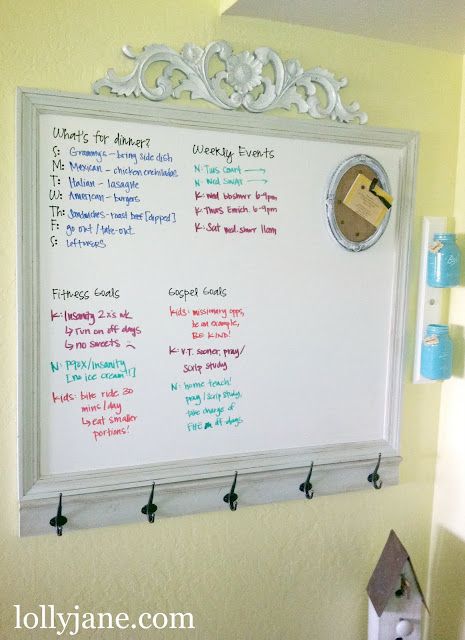 What's for dinner?
S: Grammy's - bring side dish
M: Mexican - chicken enchiladas
T: Italian - lasagne
W: American - burgers
Th: Sandwiches - roast beef [dipped]
F: go out/take-out
S: leftovers
Weekly Events
N: Tues Court →
N: Wed SWAT →
K: wed bbshwr 6-9pm
K: Thurs Enrich. 6-9pm
K: Sat wed. shwr 11am
Fitness Goals
K: Insanity 2x's wk
↳ run on off days
↳ no sweets
N: P90X/insanity
[no ice cream!!]
kids: bike ride 30
mins/day
↳ eat smaller
portions!
Gospel Goals
kids: missionary opps,
be an example,
BE KIND!
K: V.T. sooner, pray/
scrip study
N: home teach!
pray/scrip study,
take charge of
FHE off-days
lollyjane.com